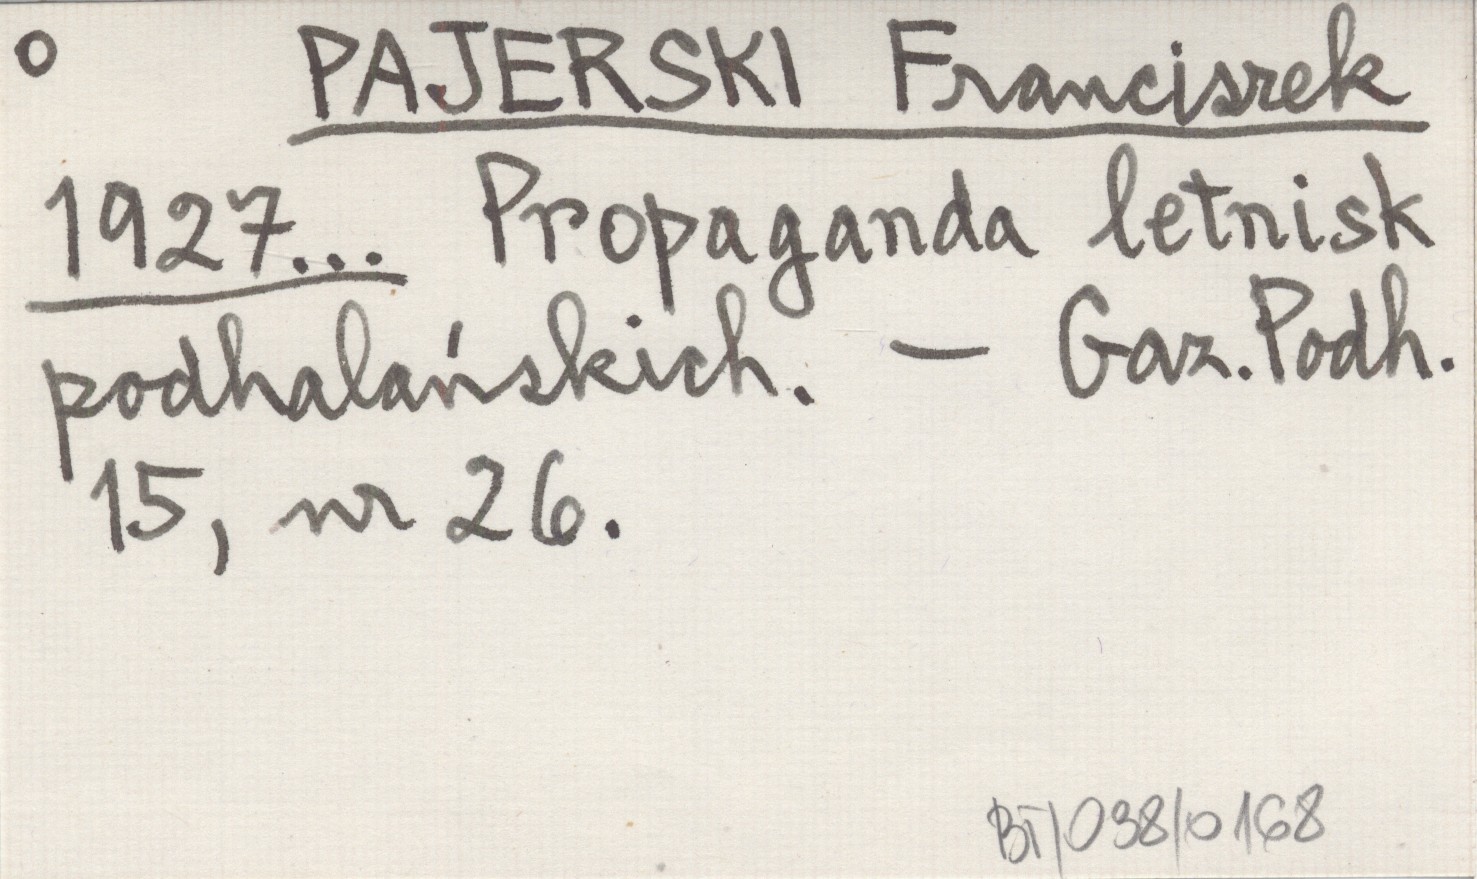 o PAJERSKI Franciszek
1927... Propaganda letnisk
podhalańskich. — Gaz. Podh.
15, nr 26.
BT/038/0168